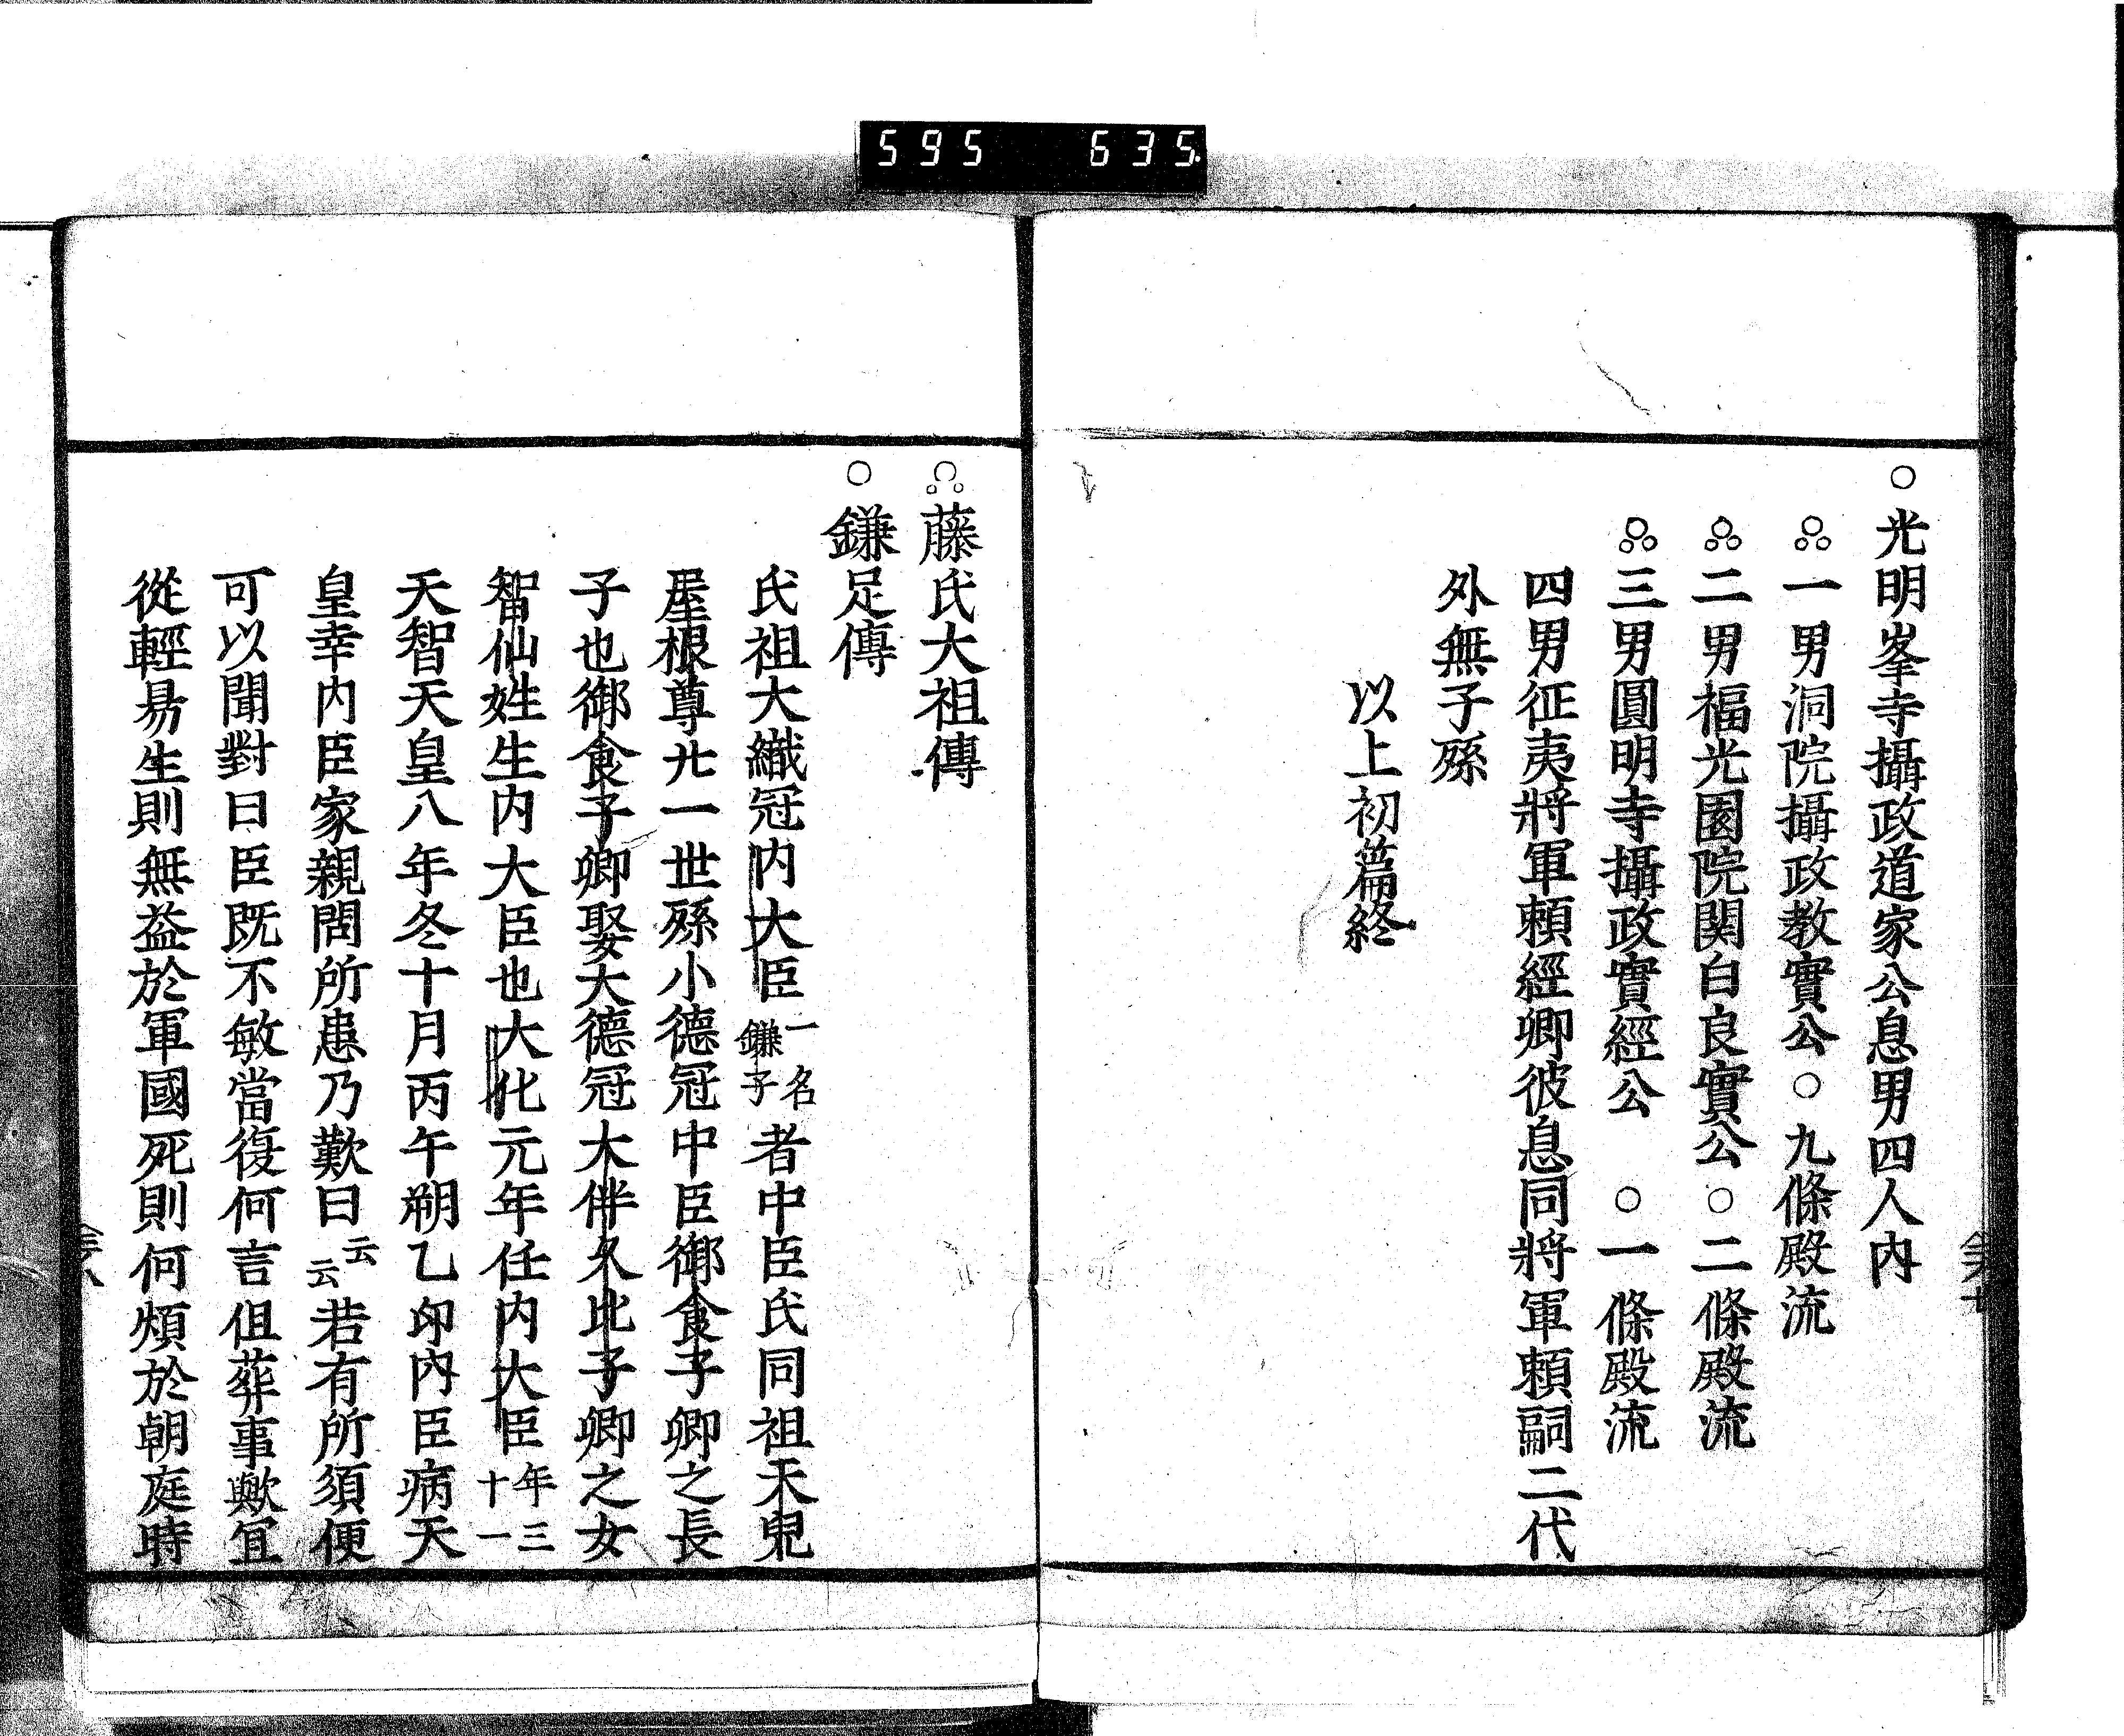 595 635
○光明峯寺攝政道家公息男四人内
一男洞院攝政教實公○九條殿流
二男福光園院関白良實公○二條殿流
三男圓明寺攝政實經公○一條殿流
四男征夷將軍頼經卿彼息同將軍頼嗣二代
外無子孫
以上初篇終
藤氏大祖傳
○鎌足傳
氏祖大織冠内大臣一名鎌子者中臣氏同祖天兒
屋根尊廿一世孫小德冠中臣御食子卿之長
子也御食子卿娶大德冠大伴久比子卿之女
智仙姓生内大臣也大化元年任内大臣年三十一
天智天皇八年冬十月丙午朔乙卯内臣病天
皇幸内臣家親問所患乃歎曰云云若有所須便
可以聞對曰臣既不敏當復何言但葬事歟宜
從輕易生則無益於軍國死則何煩於朝庭時